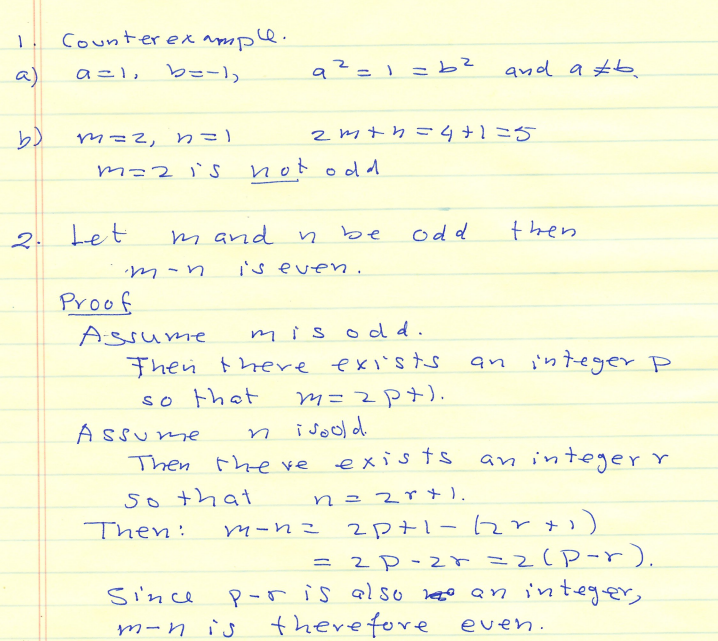 1. Counterexample.
a) a=1, b=-1, a² = 1 = b² and a ≠ b.
b) m=2, n=1 2m+n=4+1=5
m=2 is not odd
2. Let m and n be odd then
m-n is even.
Proof
Assume m is odd.
Then there exists an integer p
so that m=2p+1.
Assume n is odd.
Then there exists an integer r
so that n=2r+1.
Then: m-n = 2p+1-(2r+1)
= 2p-2r = 2(p-r).
Since p-r is also an integer,
m-n is therefore even.